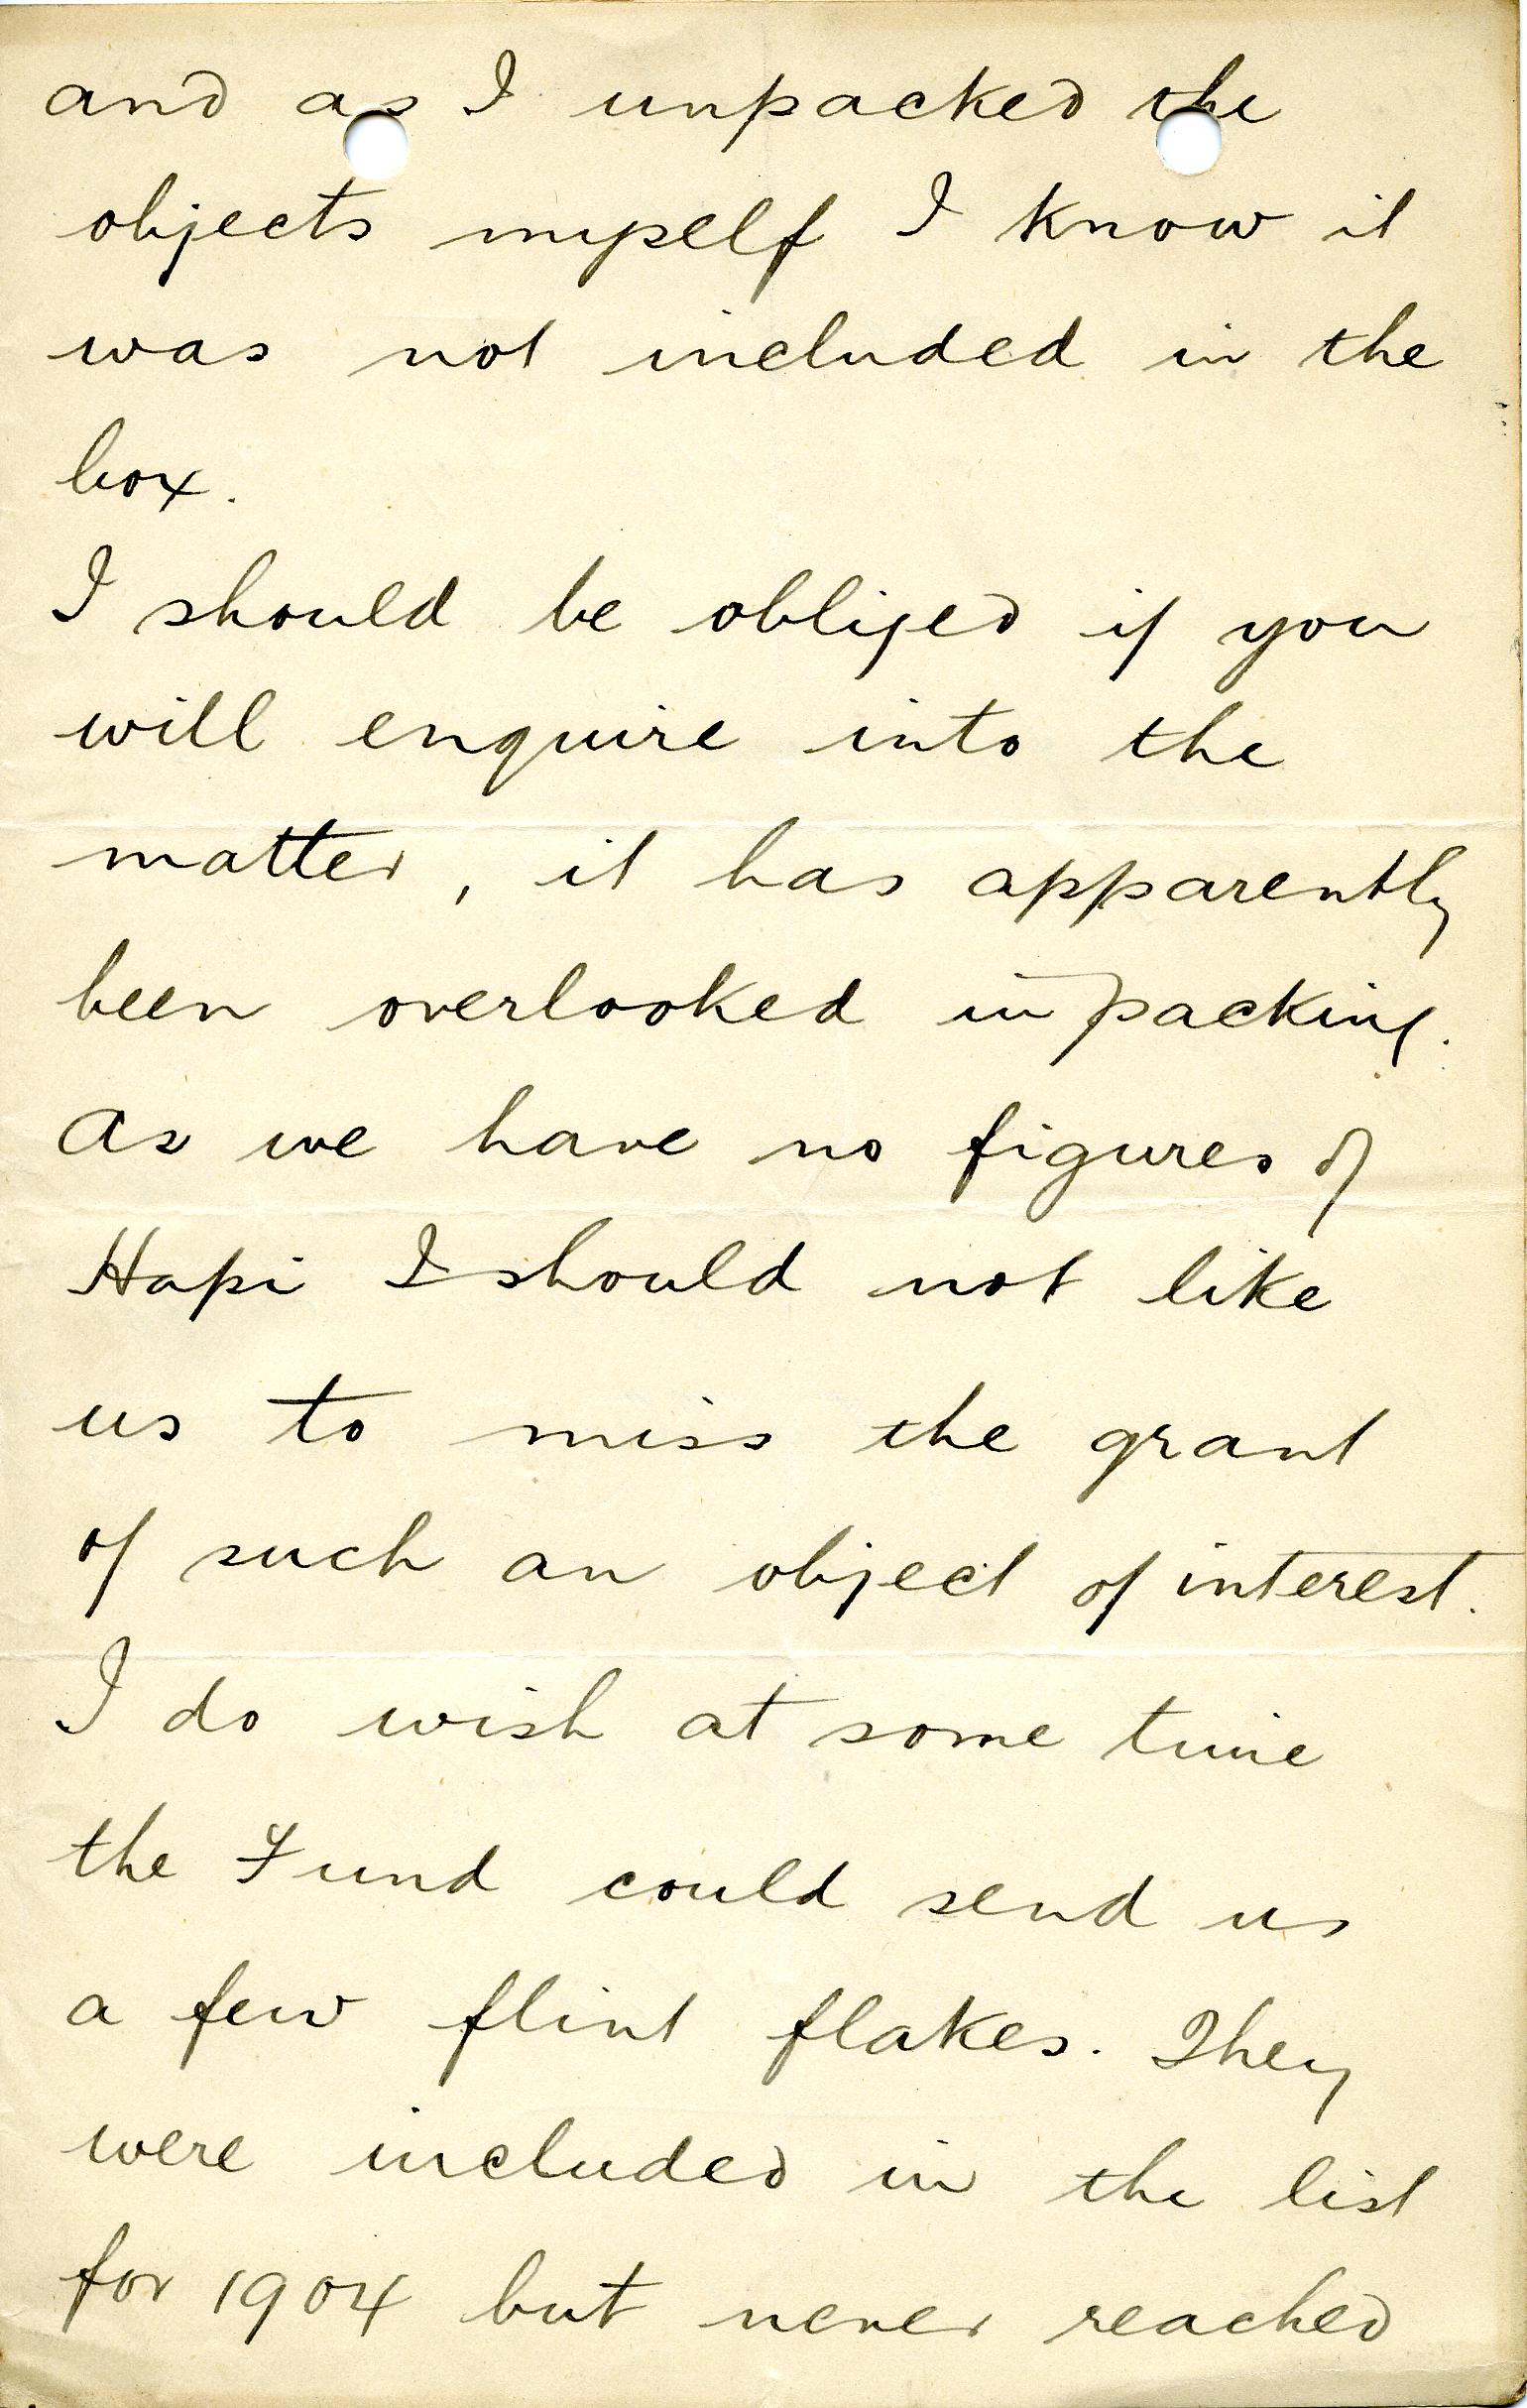 and as I unpacked the
objects myself I know it
was not included in the
box.
I should be obliged if you
will enquire into the
matter, it has apparently
been overlooked in packing.
As we have no figures of
Hapi I should not like
us to miss the grant
of such an object of interest.
I do wish at some time
the Fund could send us
a few flint flakes. They
were included in the list
for 1904 but never reached